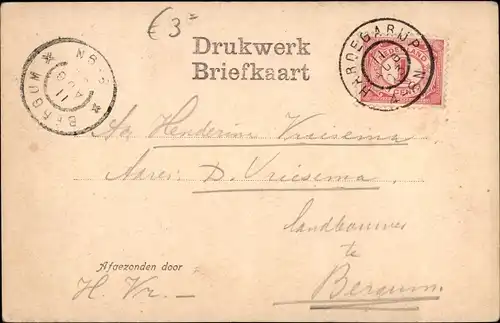 € 3=
Drukwerk
Briefkaart
HARDEGARIJP
BERGUM
11
AUG
NEDERLAND
Aan Henderin Vriesema
Adres: D. Vriesema
Landbouwer
te
Bergum.
Afgezonden door
H. Vr.—